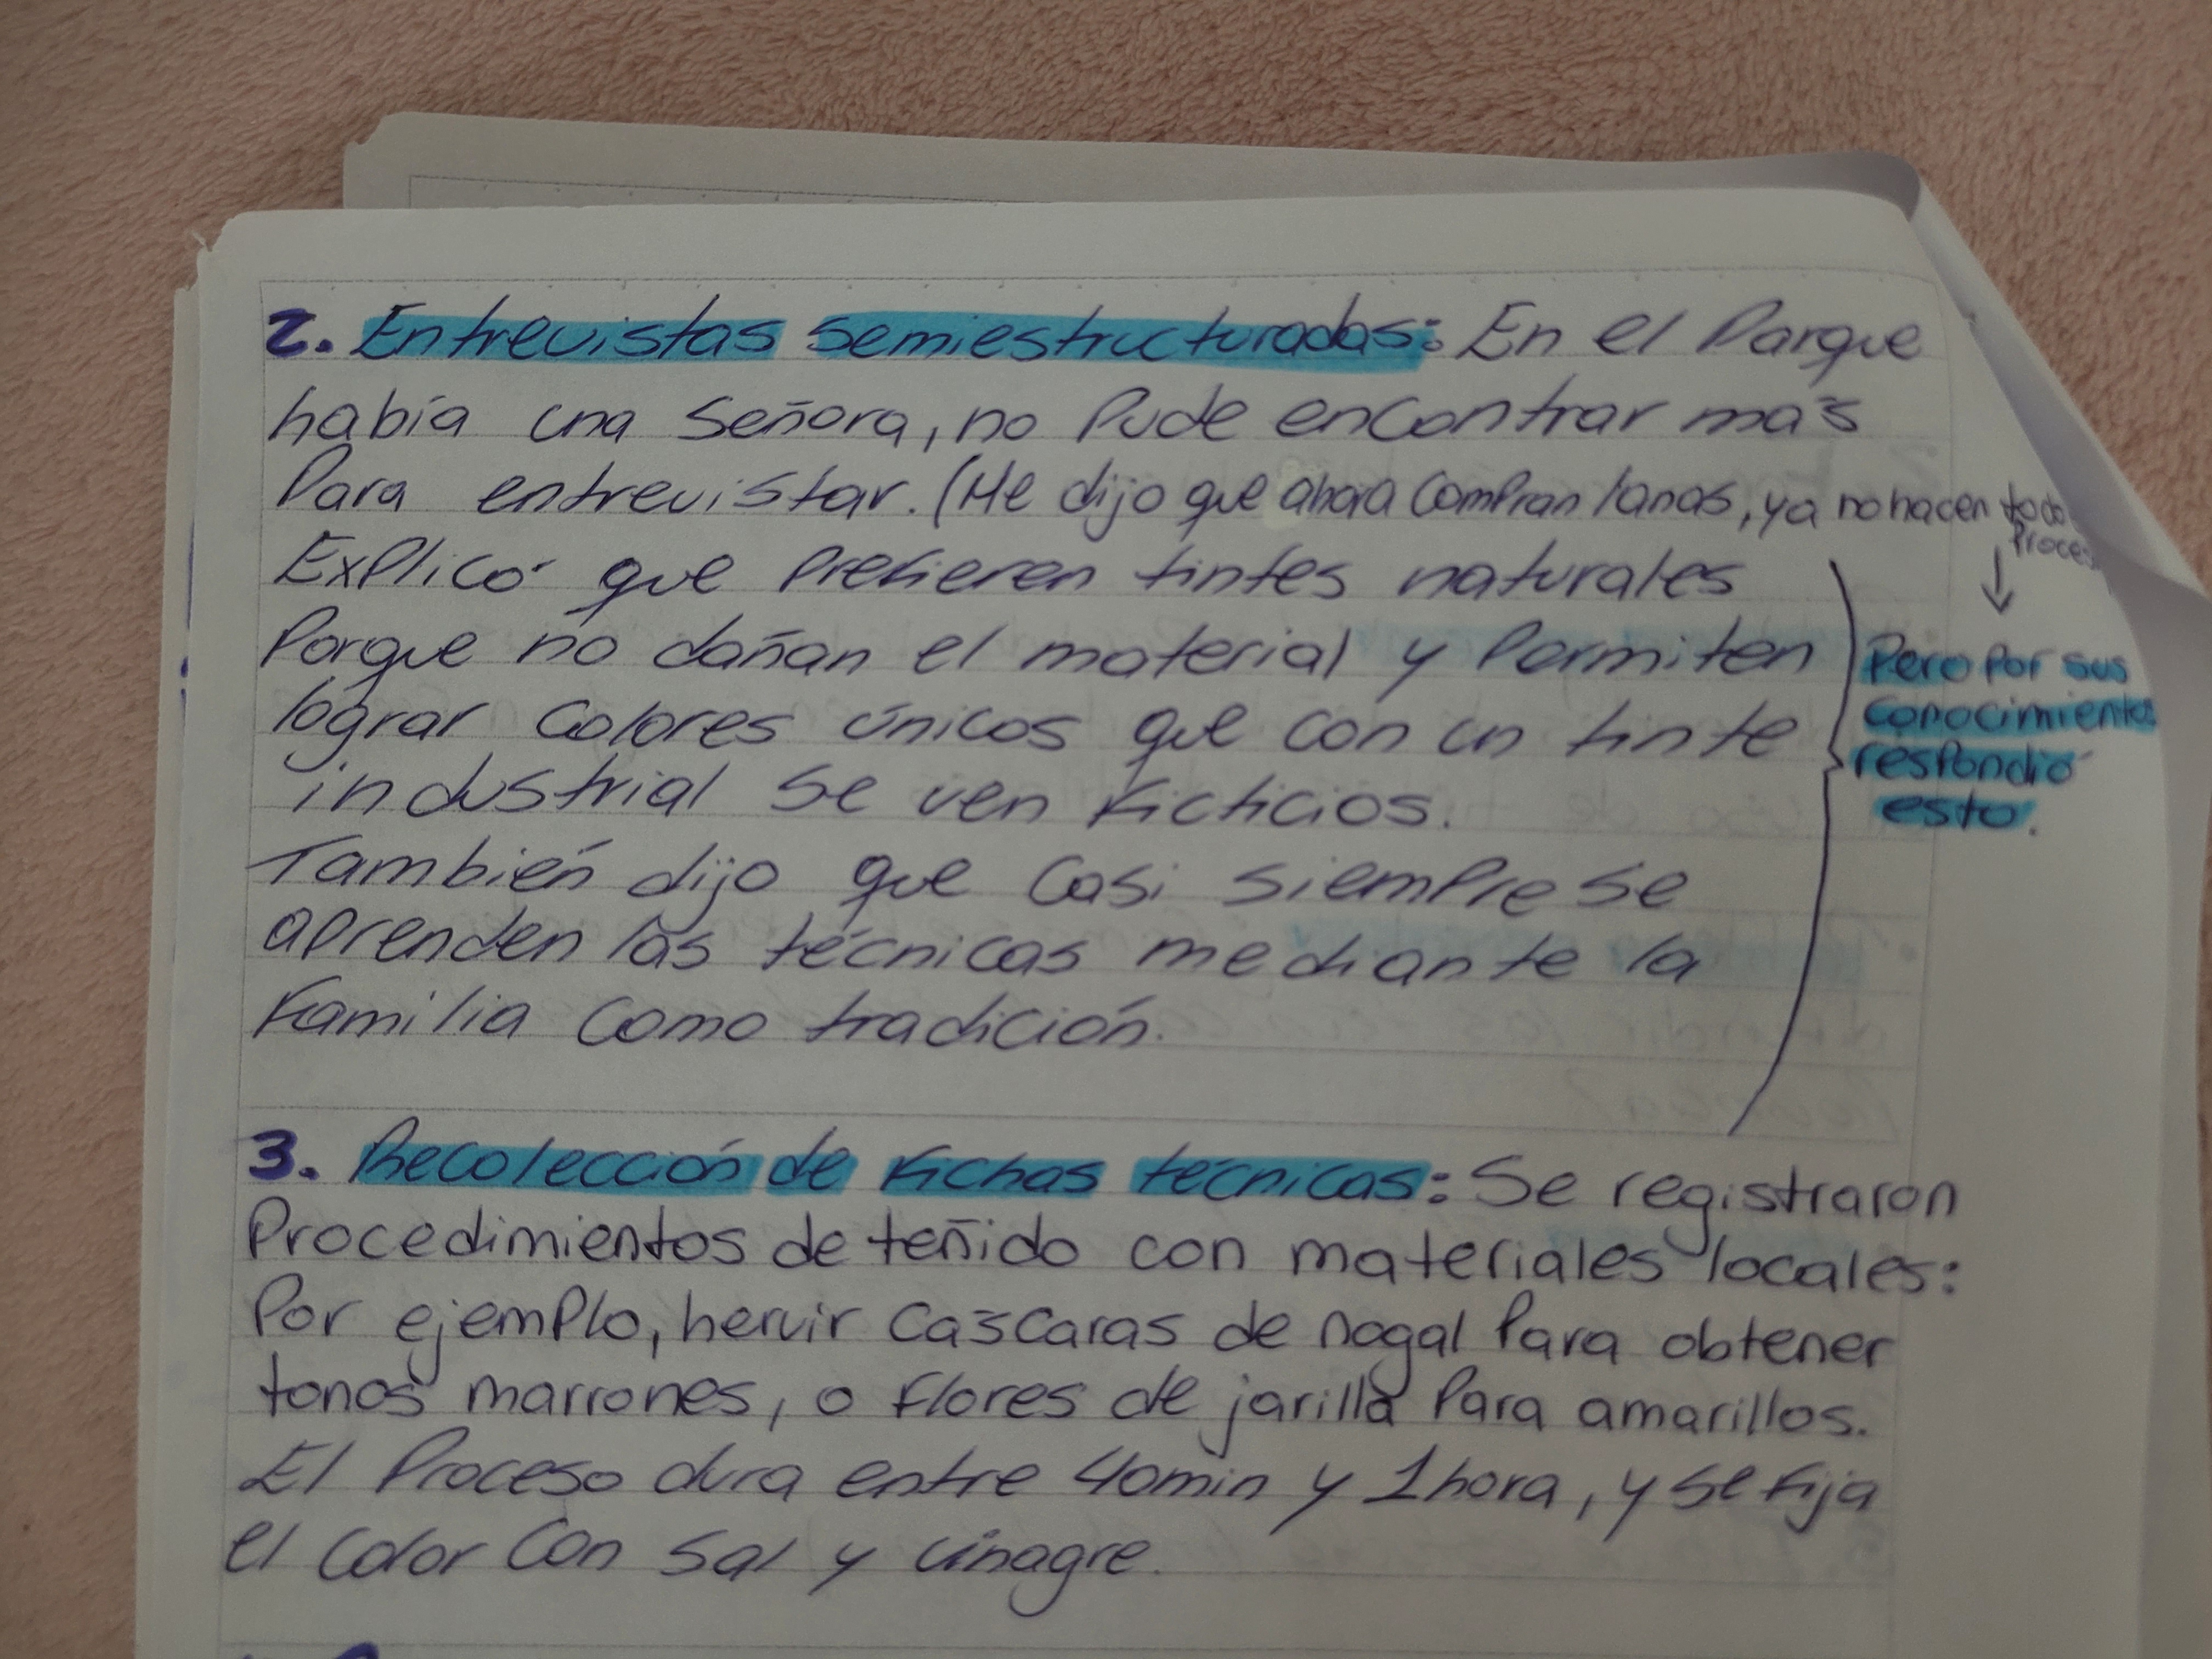 2. Entrevistas semiestructuradas: En el Parque
había una Señora, no Pude encontrar más
Para entrevistar. (Me dijo que ahora Compran lanas, ya no hacen todo
Proces
Explicó que Prefieren tintes naturales
Porque no dañan el material y Permiten
lograr Colores únicos que con un tinte
industrial se ven Ficticios.
También dijo que Casi siempre se
aprenden las técnicas mediante la
Familia Como tradición.
↓
Pero Por sus
conocimientos
respondió
esto.
3. Recolección de Fichas técnicas: Se registraron
Procedimientos de teñido con materiales locales:
Por ejemplo, hervir Cáscaras de nogal Para obtener
tonos marrones, o Flores de jarilla Para amarillos.
El Proceso dura entre 40min y 1 hora, y se Fija
el Color Con Sal y vinagre.